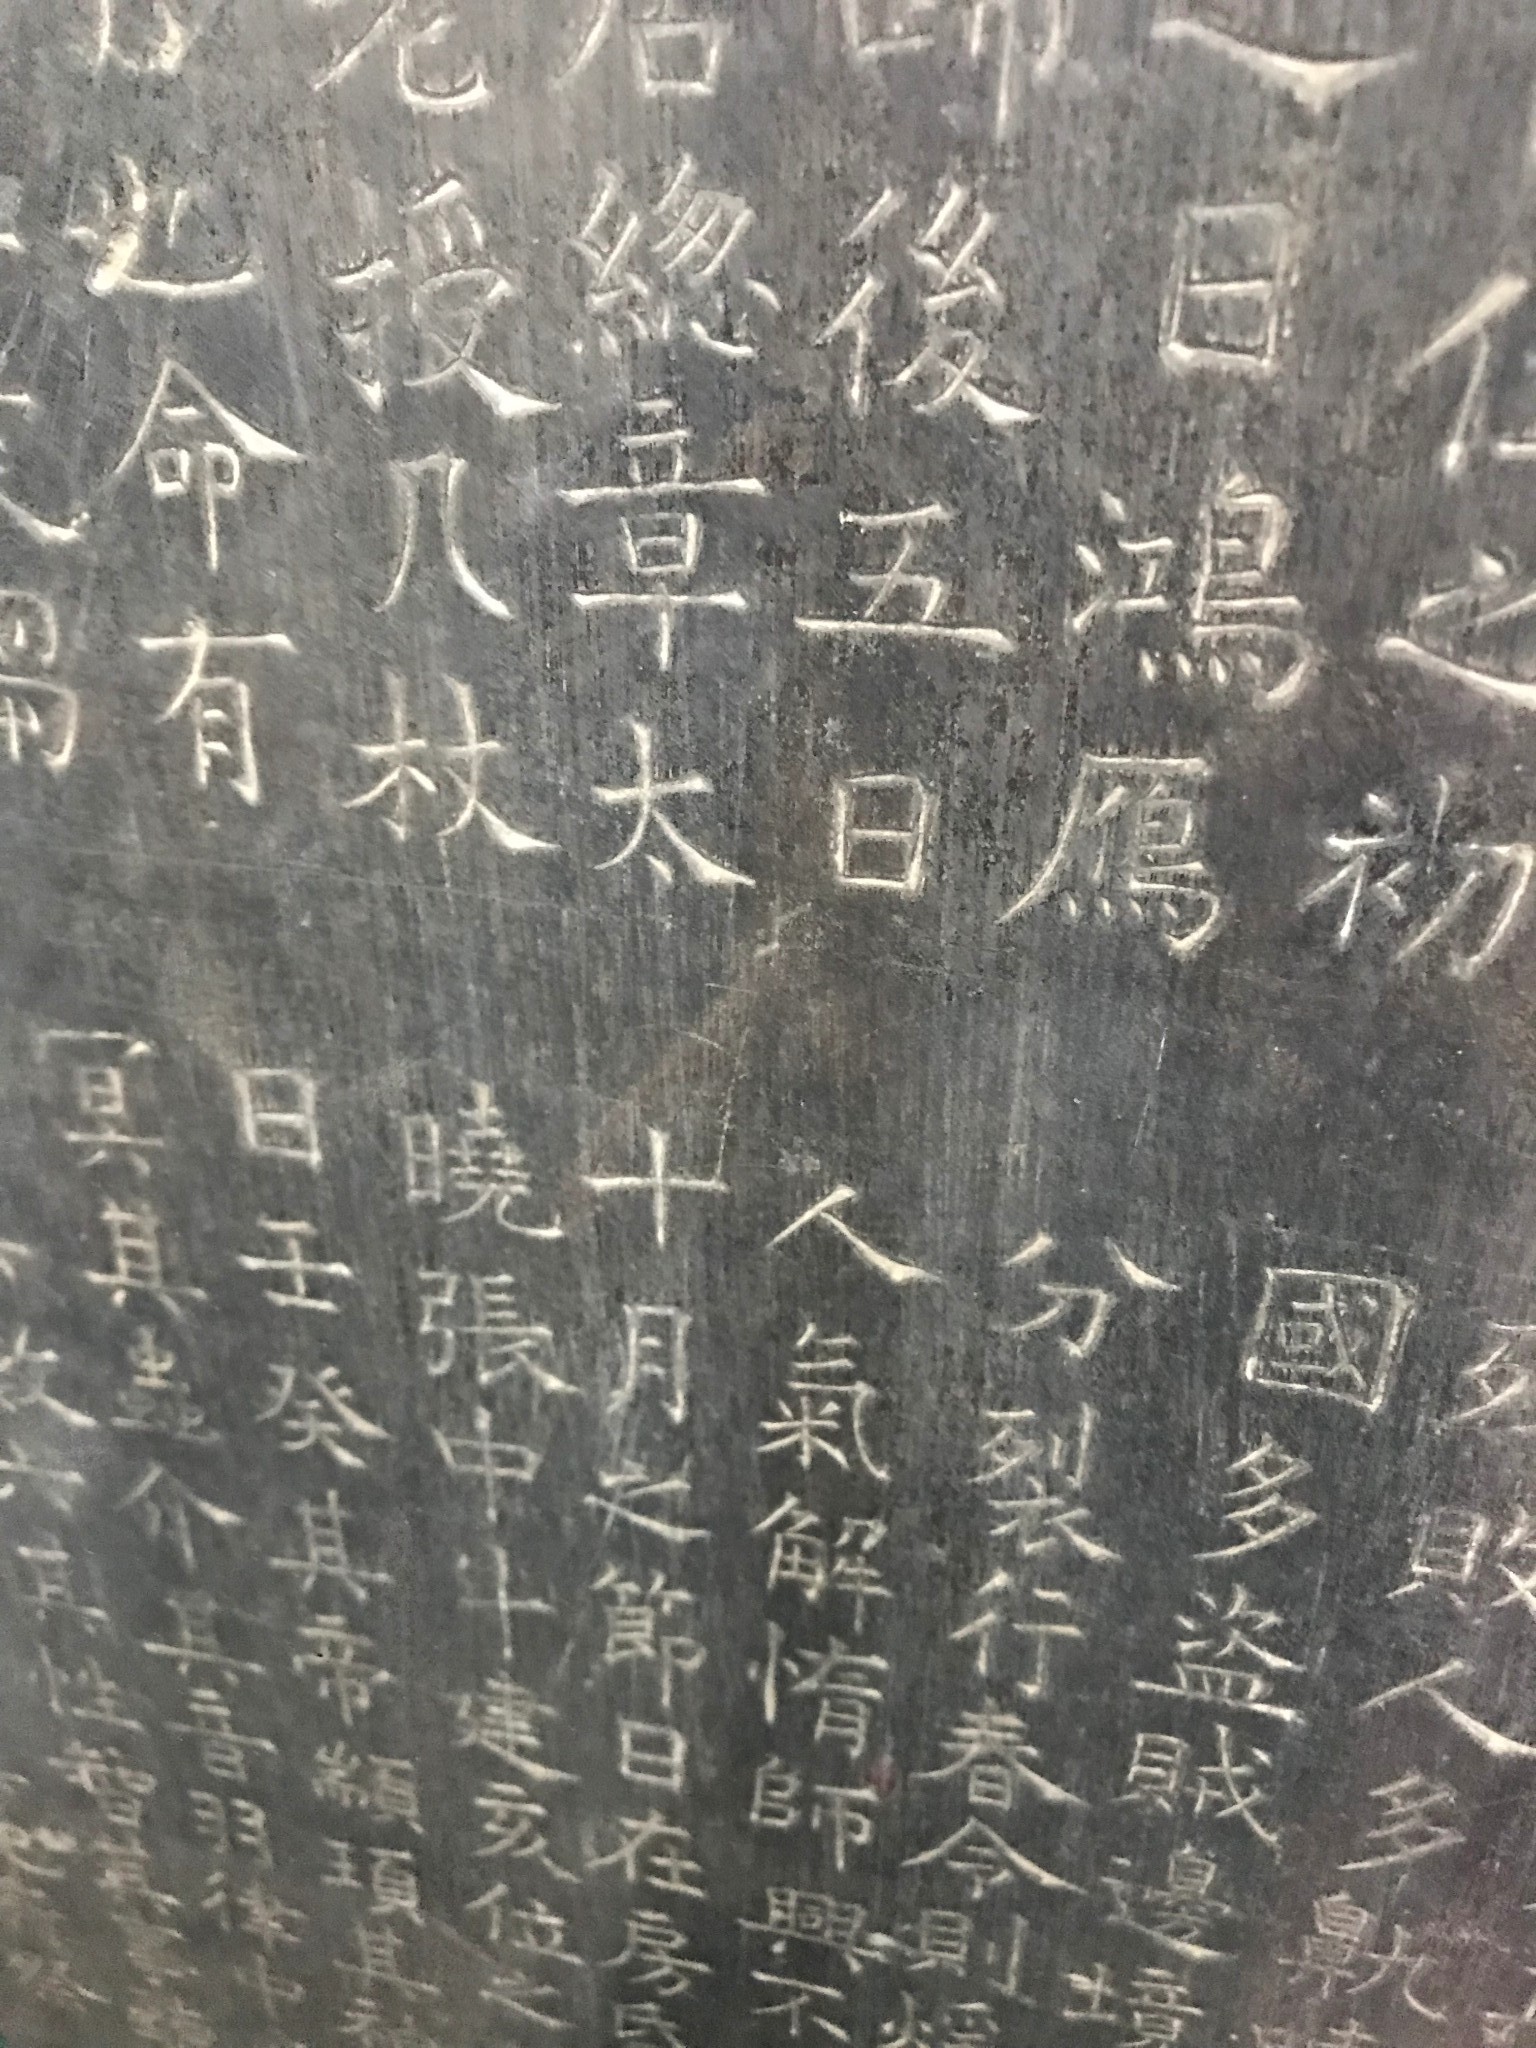 之初
日鴻鴈
後五日
總章太
授几杖
命有
敗人多鼽
國多盜賊邊境
分裂行春令則
人氣解惰師興不
十月之節日在房
曉張中斗建亥位之
日壬癸其帝顓頊其
冥其蟲介其音羽律中
六其性智其